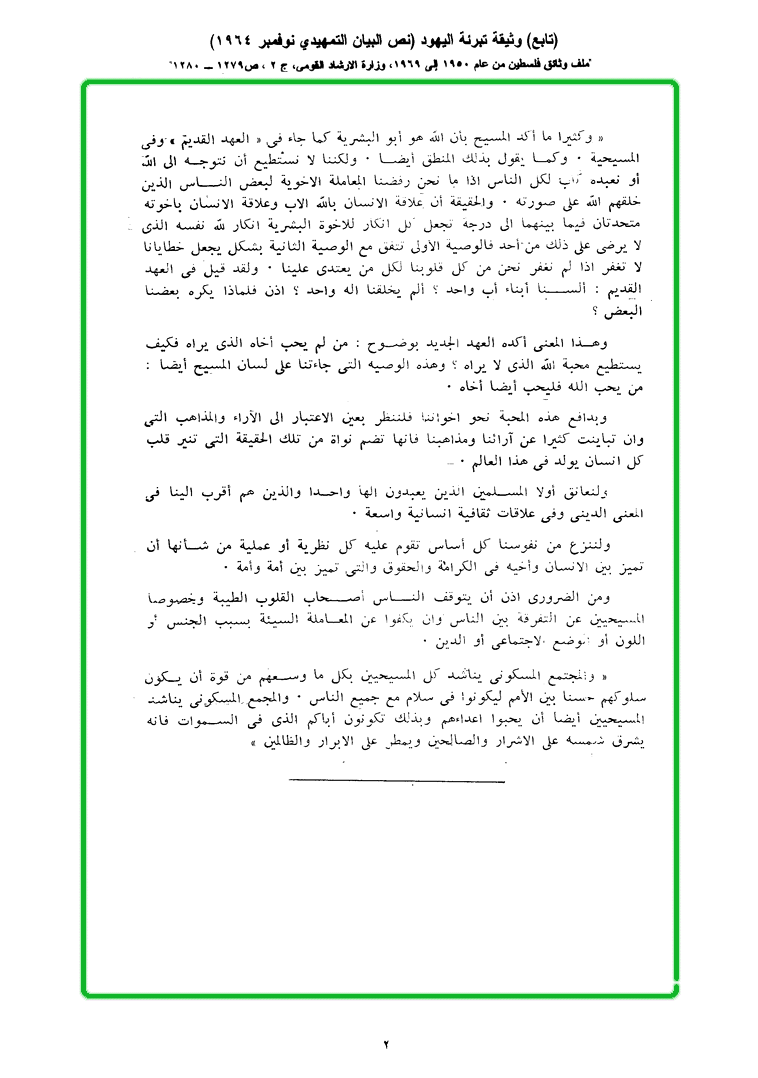 (تابع) وثيقة تبرئة اليهود (نص البيان التمهيدي نوفمبر ١٩٦٤)
"ملف وثائق فلسطين من عام ١٩٥٠ إلى ١٩٦٩، وزارة الارشاد القومى، ج ٢ ، ص١٢٧٩ – ١٢٨٠"
« وكثيرا ما أكد المسيح بأن الله هو أبو البشرية كما جاء فى « العهد القديم » وفى
المسيحية ٠ وكمـا يقول بذلك المنطق أيضـا ٠ ولكننا لا نستطيع أن نتوجـه الى الله
أو نعبده كأب لكل الناس اذا ما نحن رفضنا المعاملة الاخوية لبعض النـاس الذين
خلقهم الله على صورته ٠ والحقيقة أن علاقة الانسان بالله الاب وعلاقة الانسان باخوته
متحدتان فيما بينهما الى درجة تجعل كل انكار للاخوة البشرية انكار لله نفسه الذى
لا يرضى على ذلك من أحد فالوصية الأولى تتفق مع الوصية الثانية بشكل يجعل خطايانا
لا تغفر اذا لم نغفر نحن من كل قلوبنا لكل من يعتدى علينا ٠ ولقد قيل فى العهد
القديم : ألسـنا أبناء أب واحد ؟ ألم يخلقنا اله واحد ؟ اذن فلماذا يكره بعضنا
البعض ؟
وهـذا المعنى أكده العهد الجديد بوضوح : من لم يحب أخاه الذى يراه فكيف
يستطيع محبة الله الذى لا يراه ؟ وهذه الوصيه التى جاءتنا على لسان المسيح أيضا :
من يحب الله فليحب أيضا أخاه ٠
وبدافع هذه المحبة نحو اخواننا فلننظر بعين الاعتبار الى الآراء والمذاهب التى
وان تباينت كثيرا عن آرائنا ومذاهبنا فانها تضم نواة من تلك الحقيقة التى تنير قلب
كل انسان يولد فى هذا العالم ٠
ولنعانق أولا المسـلمين الذين يعبدون إلها واحـدا والذين هم أقرب الينا فى
المعنى الدينى وفى علاقات ثقافية انسانية واسعة ٠
ولننزع من نفوسنا كل أساس تقوم عليه كل نظرية أو عملية من شـأنها أن
تميز بين الانسان وأخيه فى الكرامة والحقوق والتى تميز بين أمة وأمة ٠
ومن الضرورى اذن أن يتوقف النـاس أصـحاب القلوب الطيبة وخصوصا
المسيحيين عن التفرقة بين الناس وان يكفوا عن المعـاملة السيئة بسبب الجنس أو
اللون أو الوضع الاجتماعى أو الدين ٠
« والمجتمع المسكونى يناشد كل المسيحيين بكل ما وسـعهم من قوة أن يـكون
سلوكهم حسنا بين الأمم ليكونوا فى سلام مع جميع الناس ٠ والمجمع المسكونى يناشد
المسيحيين أيضا أن يحبوا اعداءهم وبذلك تكونون أباكم الذى فى السـموات فانه
يشرق شمسه على الاشرار والصالحين ويمطر على الابرار والظالمين »
٢